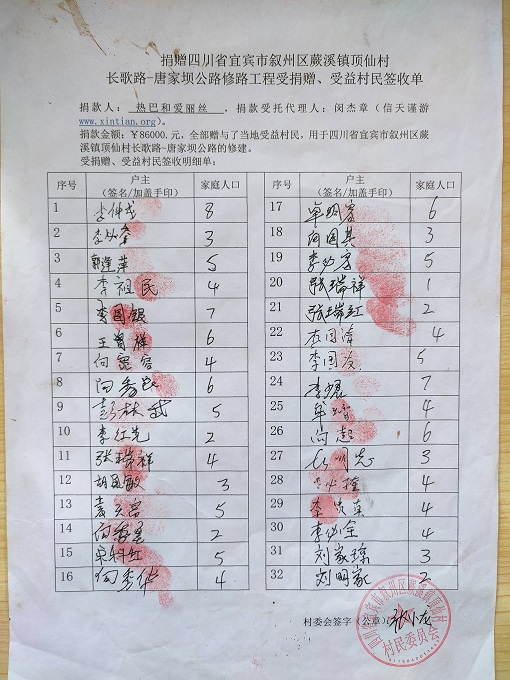 捐赠四川省宜宾市叙州区蕨溪镇顶仙村
长歌路-唐家坝公路修路工程受捐赠、受益村民签收单
捐款人： 热巴和爱丽丝 ，捐款受托代理人：闵杰章（信天谨游
www.xintian.org）。
捐款金额：￥86000.元，全部赠与了当地受益村民，用于四川省宜宾市叙州区蕨
溪镇顶仙村长歌路-唐家坝公路的修建。
受捐赠、受益村民签收明细单：
序号 户主（签名/加盖手印） 家庭人口
1 李仲戎 8
2 3
3 郭逢萍 5
4 李祖民 4
5 李国银 7
6 王曾祥 6
7 4
8 6
9 彭林武 5
10 李红先 2
11 张瑞祥 4
12 胡国敏 3
13 5
14 2
15 5
16 向秀华 4
序号 户主（签名/加盖手印） 家庭人口
17 6
18 向国其 3
19 5
20 张瑞祥 1
21 张瑞红 2
22 4
23 李国友 5
24 李琨 7
25 4
26 向超 6
27 3
28 4
29 4
30 李必全 4
31 刘家琼 3
32 刘明家 2
村委会签字（公章）：
村民委员会